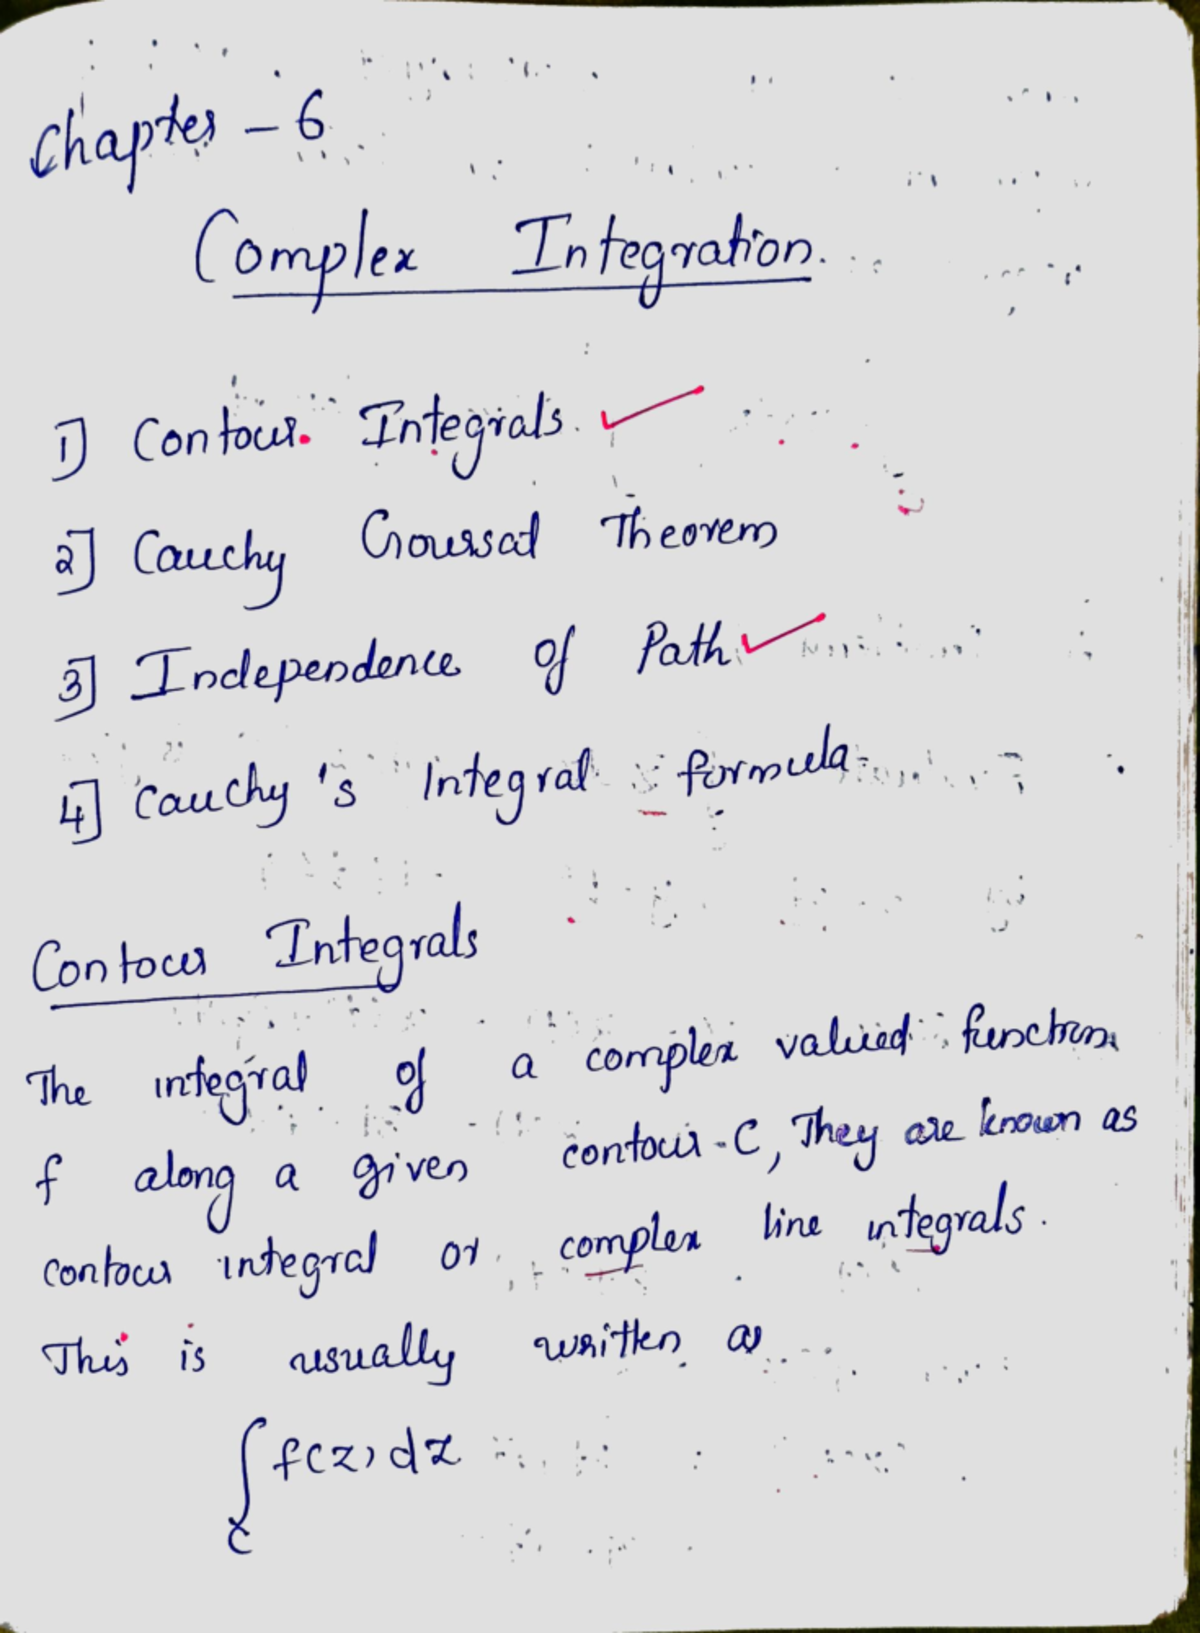 Chapter - 6
Complex Integration.
1] Contour Integrals.
2] Cauchy Goursat Theorem
3] Independence of Path
4] Cauchy's Integral formula
Contour Integrals
The integral of a complex valued function
f along a given contour-C, They are known as
contour integral or complex line integrals.
This is usually written as
∫_C f(z) dz